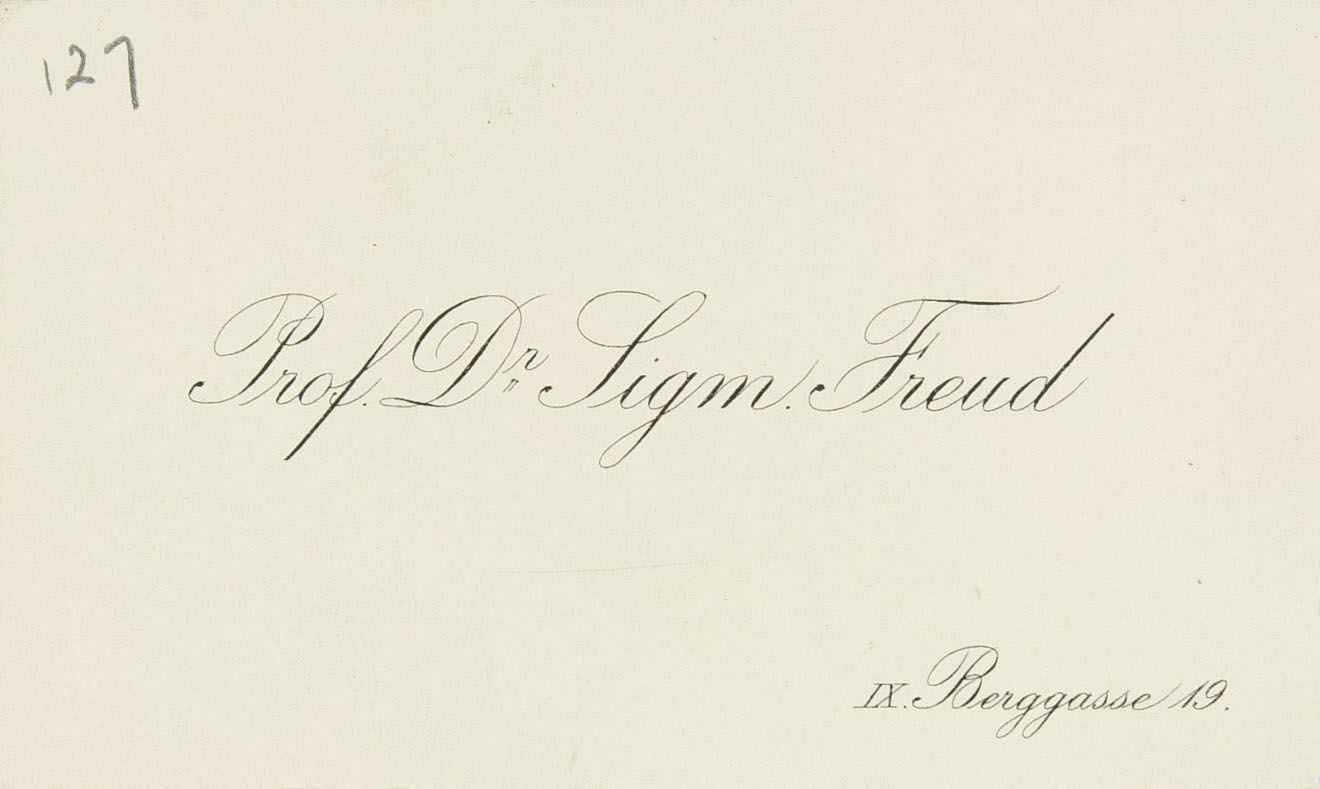 127
Prof. Dr. Sigm. Freud
IX. Berggasse 19.